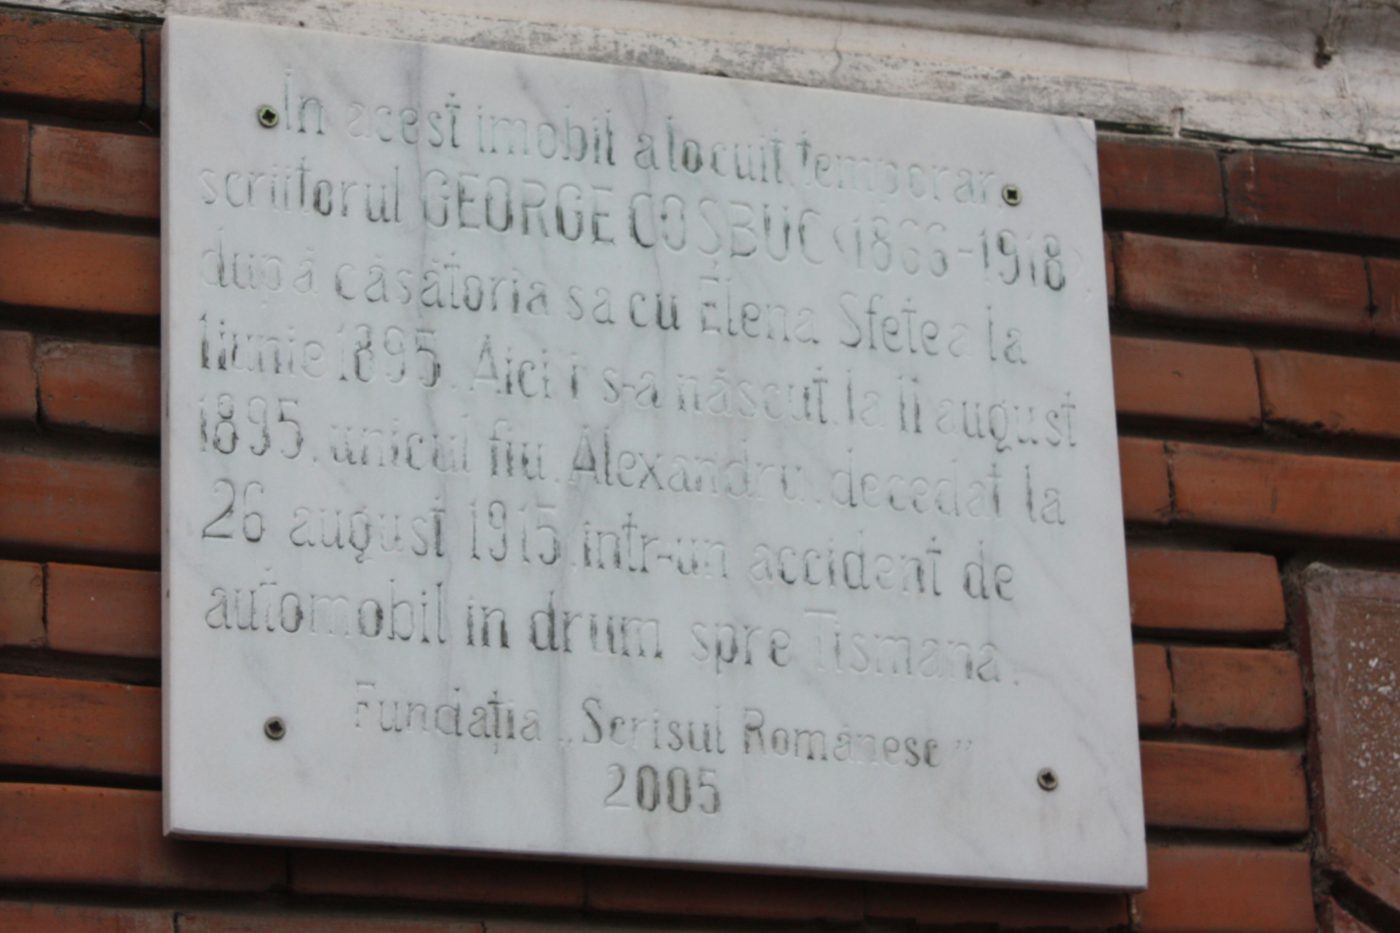 In acest imobil a locuit, temporar,
scriitorul GEORGE COȘBUC (1866-1918),
după căsătoria sa cu Elena Sfetea la
1 iunie 1895. Aici i s-a născut, la 11 august
1895, unicul fiu, Alexandru, decedat la
26 august 1915, într-un accident de
automobil in drum spre Tismana.
Fundația „Scrisul Românesc”
2005